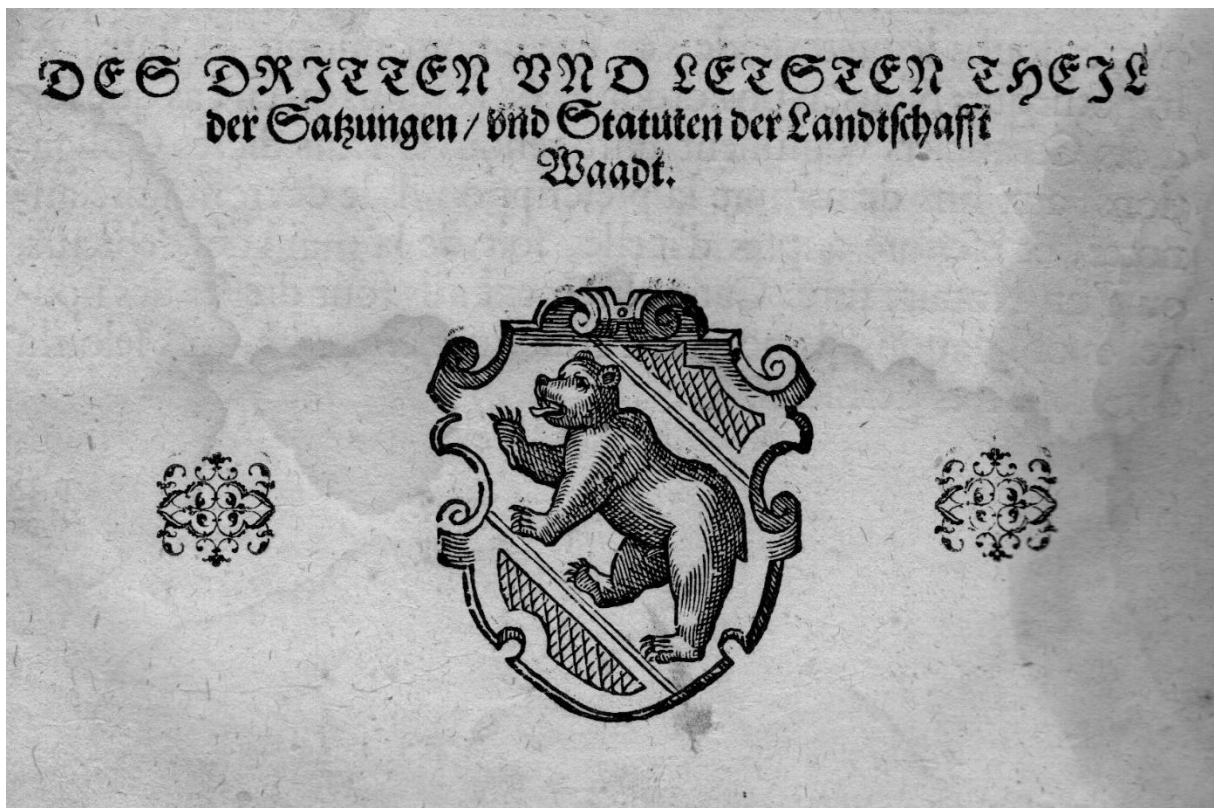 DES DRITTEN VND LETSTEN THEIL
der Satzungen / vnd Statuten der Landtschafft
Waadt.